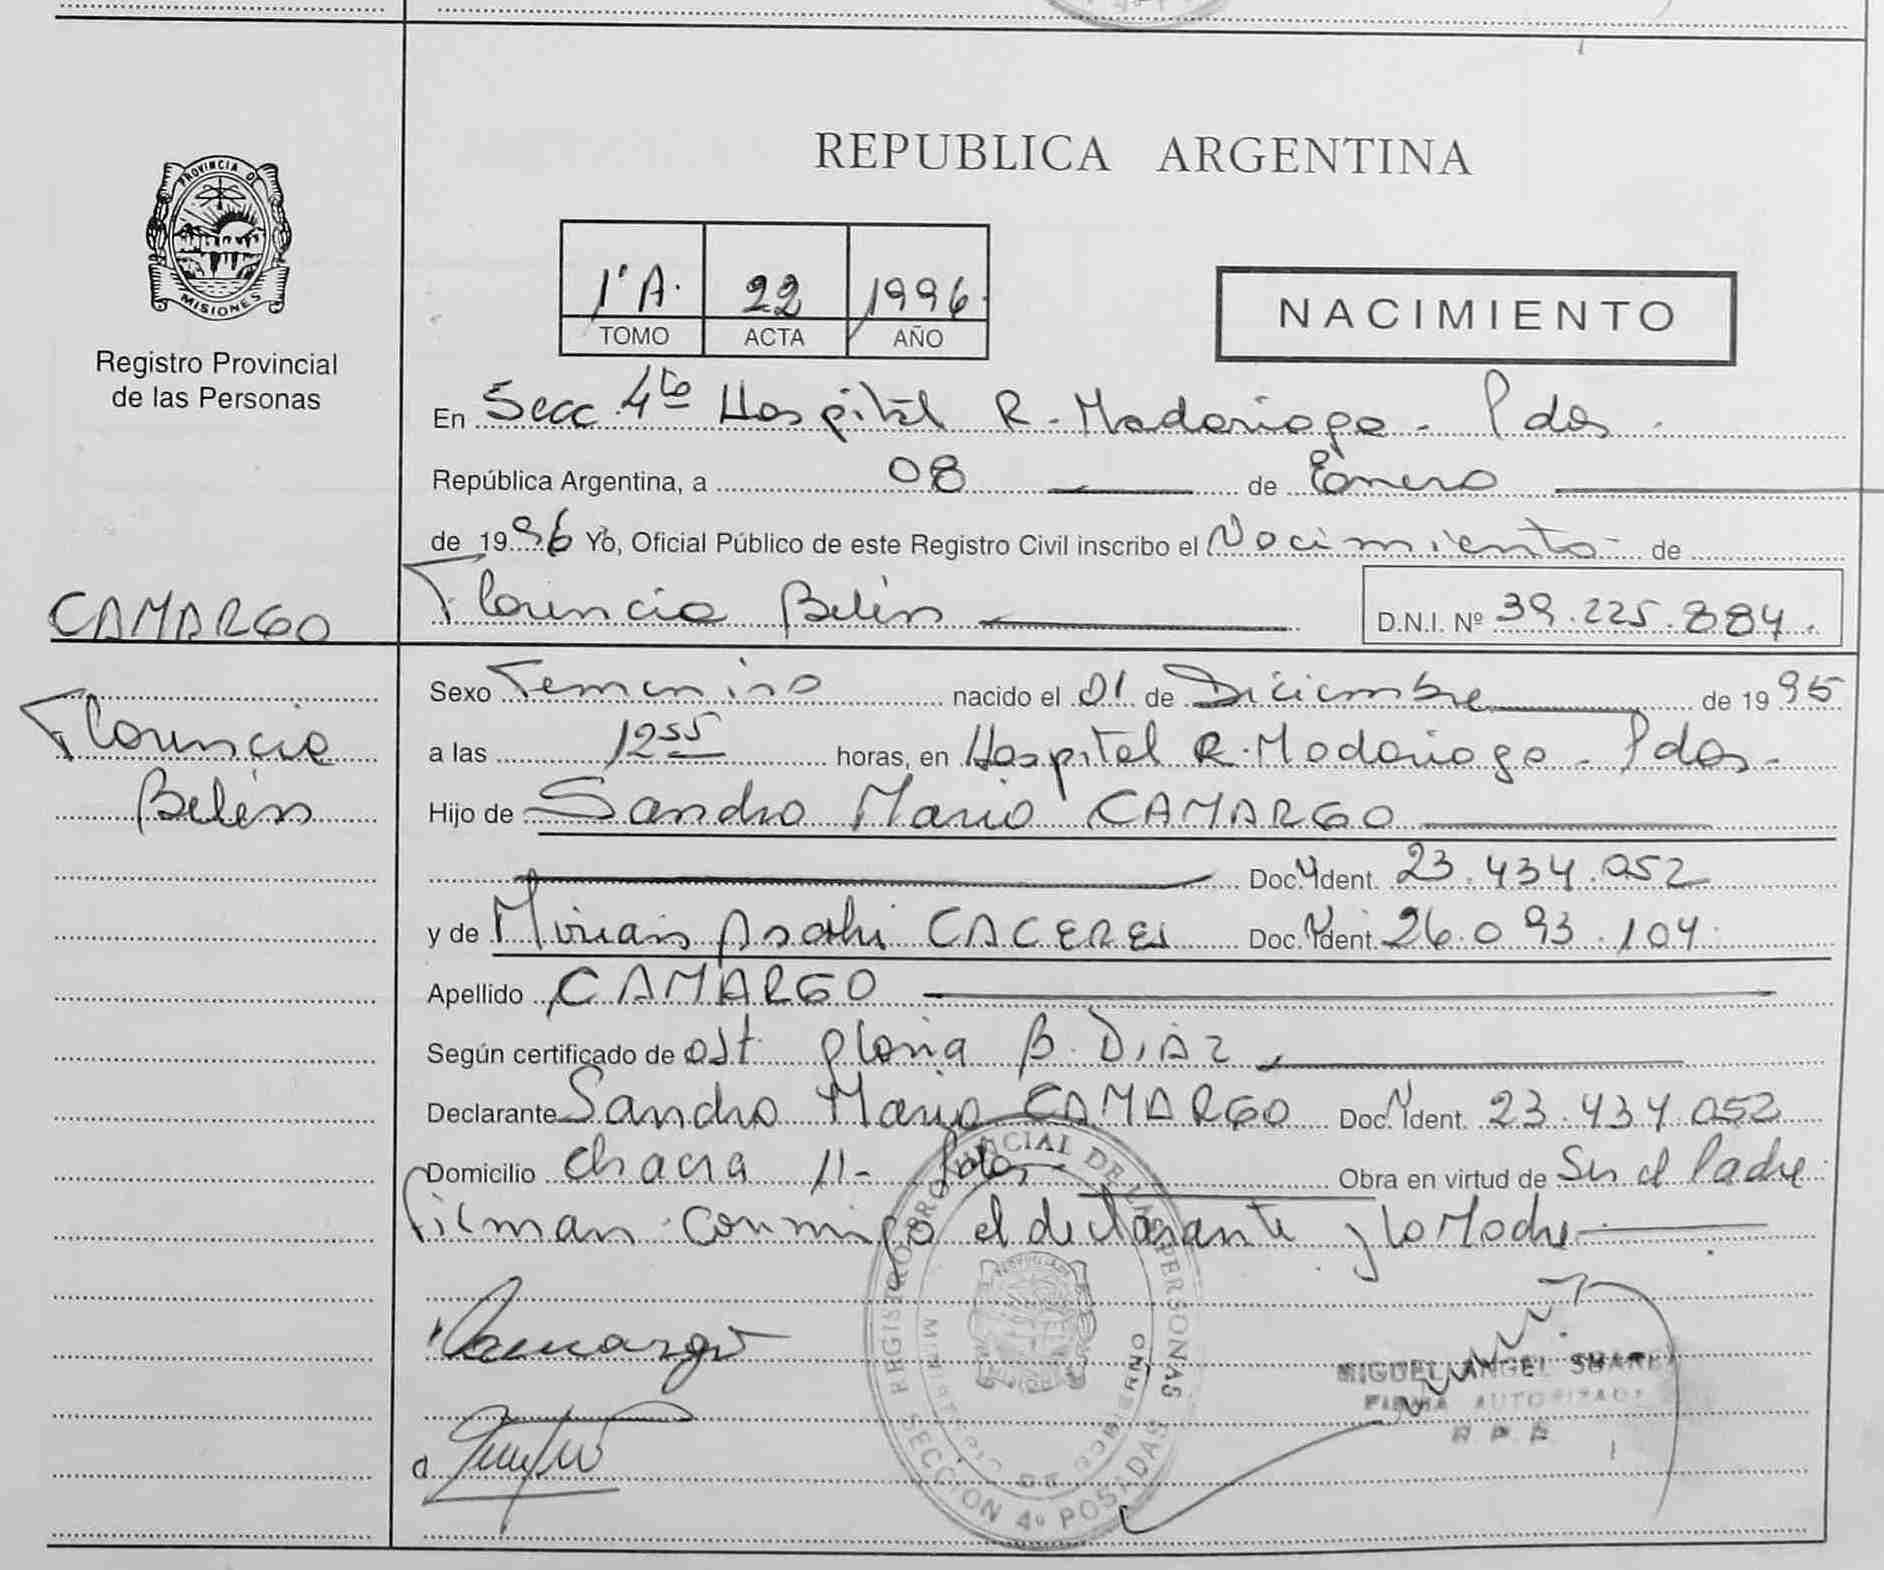 PROVINCIA DE
MISIONES
Registro Provincial
de las Personas
REPUBLICA ARGENTINA
1ºA. 22 1996.
TOMO ACTA AÑO
NACIMIENTO
En Secc 4ta Hospital R. Madariaga - Pdas.
República Argentina, a 08 de Enero
de 1996 Yo, Oficial Público de este Registro Civil inscribo el Nacimiento de
CAMARGO Florencia Belén D.N.I. Nº 39.225.884.
Sexo Femenino nacido el 01 de Diciembre de 1995
Florencia
a las 12 55 horas, en Hospital R. Madariaga - Pdas -
Belén
Hijo de Sandro Mario CAMARGO
Doc. Ident. 23.434.052
y de CACERES Doc. Ident. 26.093.104
Apellido CAMARGO
Según certificado de Ost. Gloria B. DIAZ
Declarante Sandro Mario CAMARGO Doc. Ident. 23.434.052
Domicilio Chacra 11 - Pdas - Obra en virtud de Ser el Padre
Firman conmigo el declarante y la Madre
Camargo
REGISTRO PROVINCIAL DE LAS PERSONAS
MINISTERIO DE GOBIERNO
SECCION 4º POSADAS
MIGUEL ANGEL SUAREZ
FIRMA AUTORIZADA